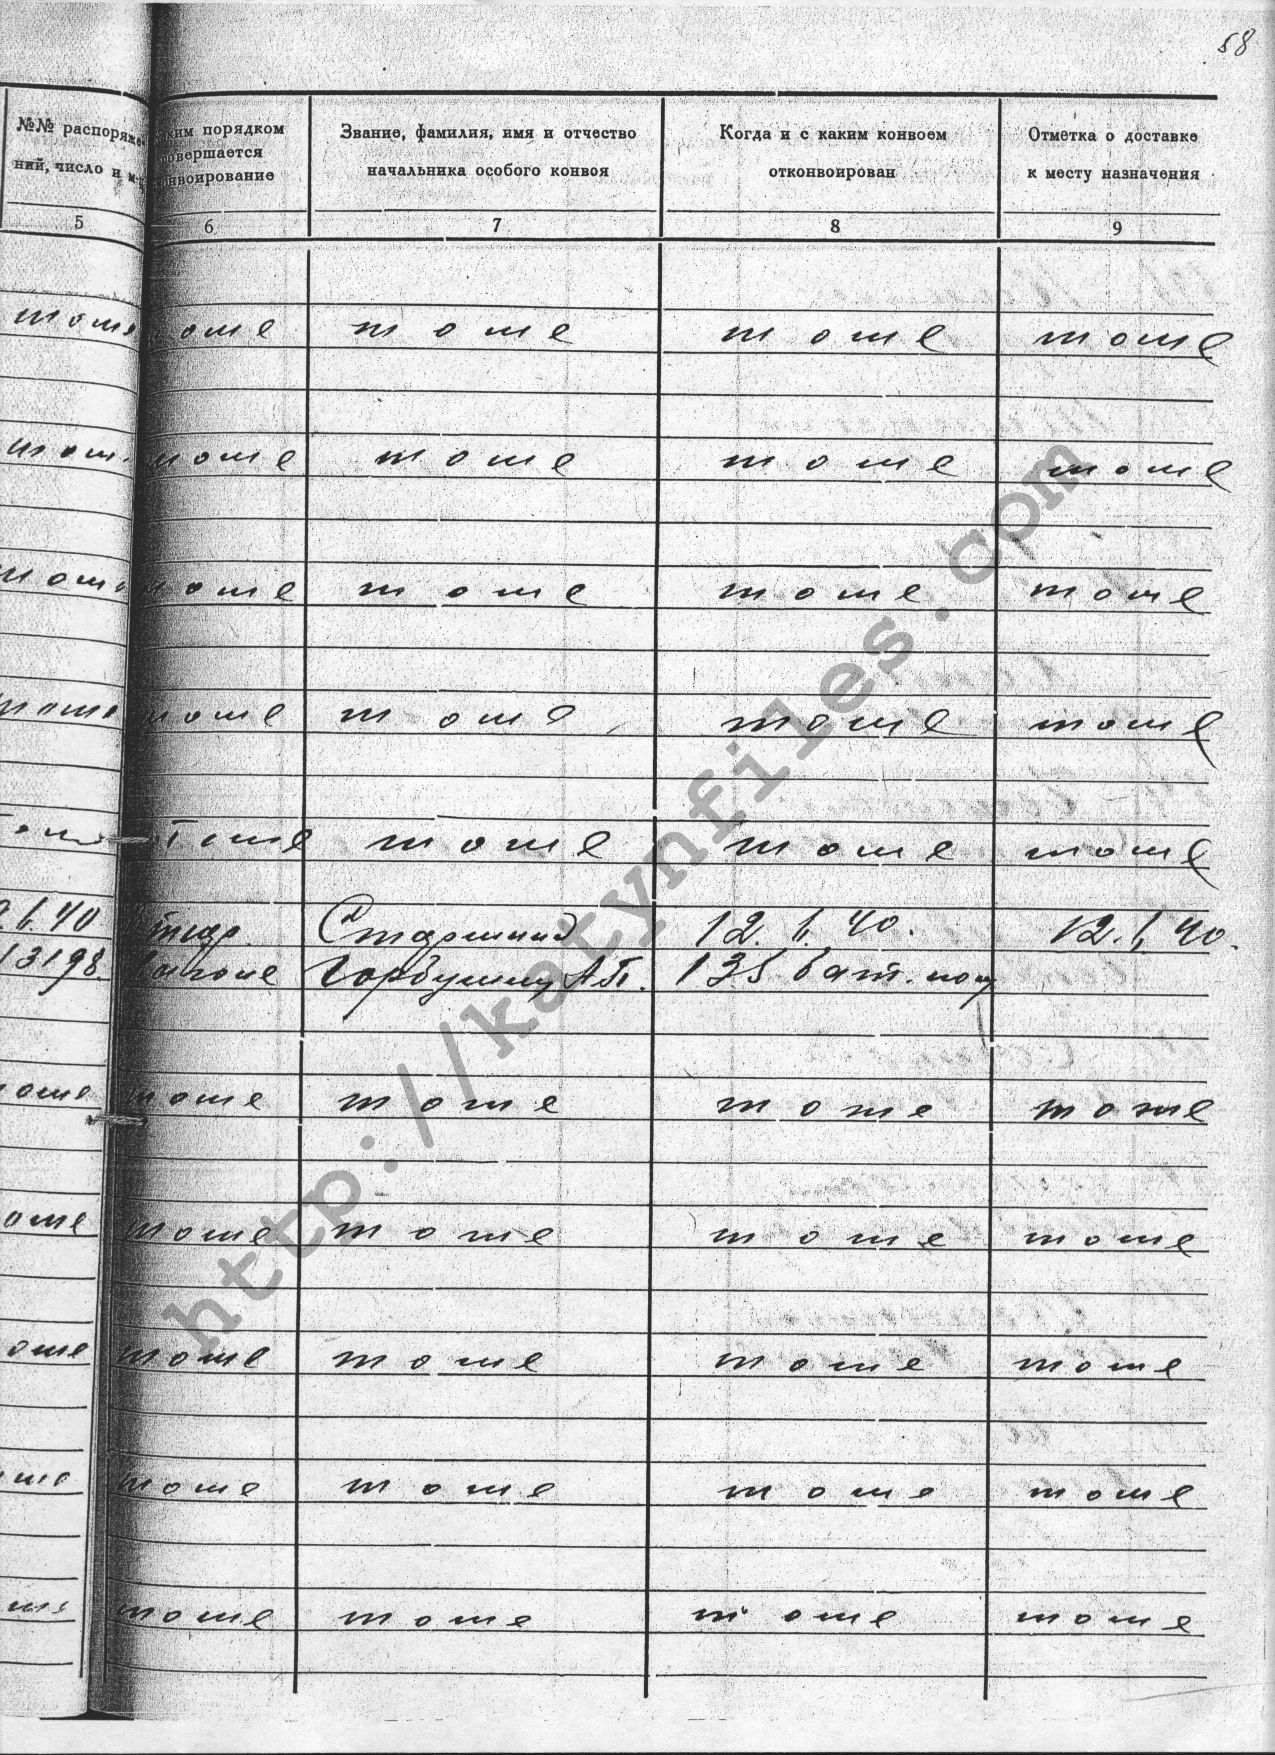 58
№№ распоряже-
ний, число и м-ц
ким порядком
овершается
онвоирование
Звание, фамилия, имя и отчество
начальника особого конвоя
Когда и с каким конвоем
отконвоирован
Отметка о доставке
к месту назначения
5 6 7 8 9
тоже оже тоже тоже тоже
тож тоже тоже тоже тоже
тоже тоже тоже тоже тоже
тоже тоже тоже тоже тоже
тоже тоже тоже тоже
40 Старший 12. 40. 12. 40.
13198. вагоне Горбушин А.П. 135 бат.
оже тоже тоже тоже тоже
оже тоже тоже тоже тоже
оже тоже тоже тоже тоже
же тоже тоже тоже тоже
же тоже тоже тоже тоже
http://katynfiles.com